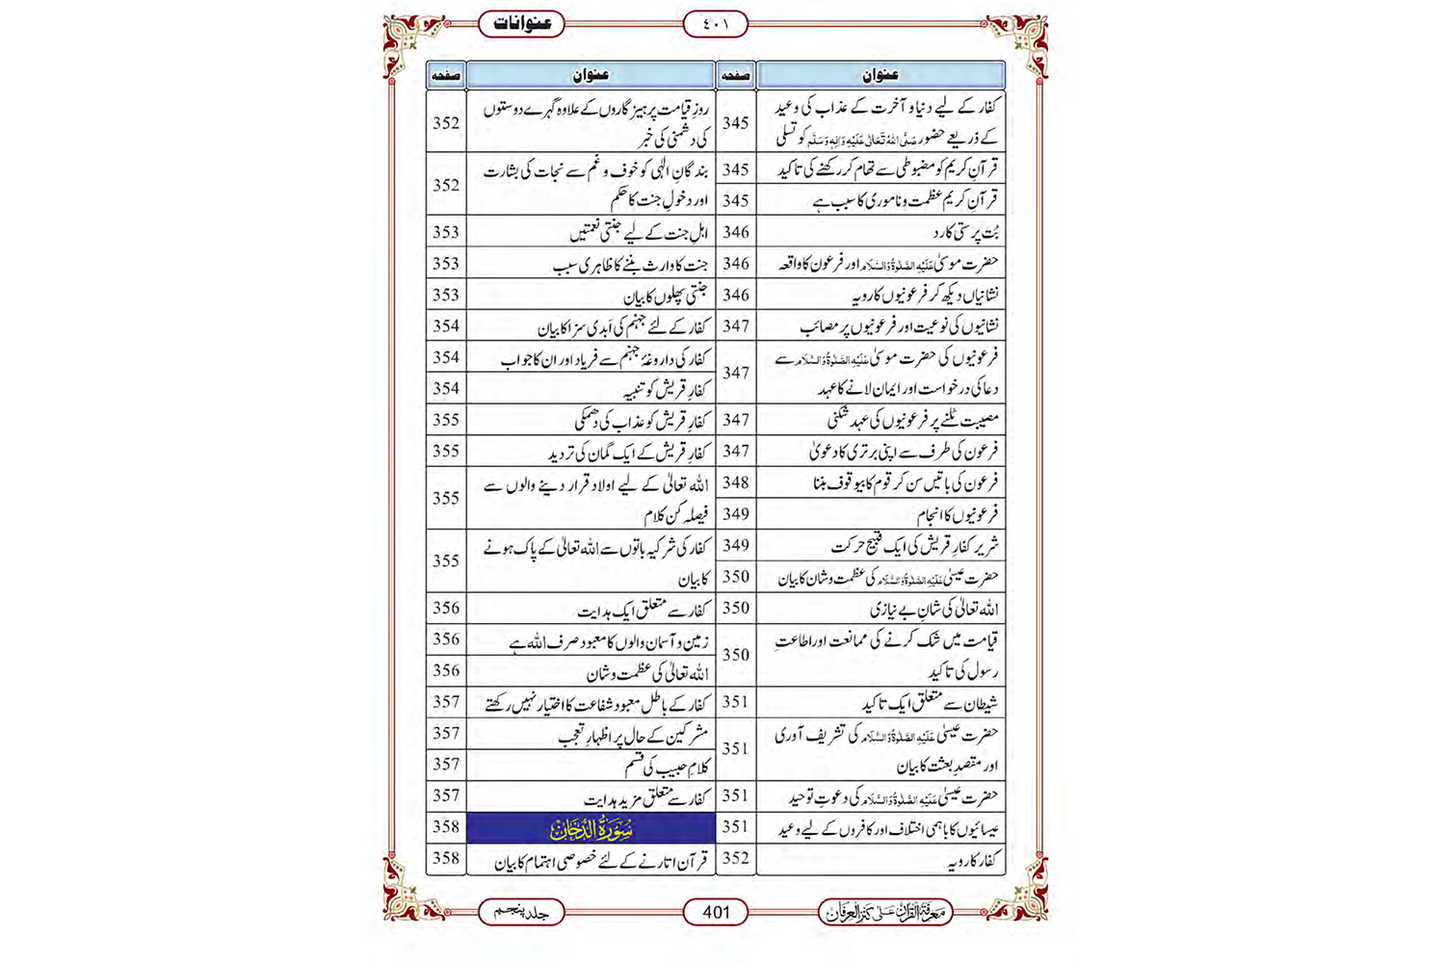 عنوانات
٤٠١
عنوان صفحہ
کفار کے لیے دنیا و آخرت کے عذاب کی وعید
کے ذریعے حضور صَلَّی اللہُ تَعَالٰی عَلَیْہِ وَاٰلِہٖ وَسَلَّم کو تسلی 345
قرآنِ کریم کو مضبوطی سے تھام کر رکھنے کی تاکید 345
قرآنِ کریم عظمت و ناموری کا سبب ہے 345
بُت پرستی کا رد 346
حضرت موسیٰ عَلَیْہِ الصَّلٰوۃُ وَالسَّلَام اور فرعون کا واقعہ 346
نشانیاں دیکھ کر فرعونیوں کا رویہ 346
نشانیوں کی نوعیت اور فرعونیوں پر مصائب 347
فرعونیوں کی حضرت موسیٰ عَلَیْہِ الصَّلٰوۃُ وَالسَّلَام سے
دعا کی درخواست اور ایمان لانے کا عہد 347
مصیبت ٹلنے پر فرعونیوں کی عہد شکنی 347
فرعون کی طرف سے اپنی برتری کا دعویٰ 347
فرعون کی باتیں سن کر قوم کا بیوقوف بننا 348
فرعونیوں کا انجام 349
شریر کفارِ قریش کی ایک قبیح حرکت 349
حضرت عیسیٰ عَلَیْہِ الصَّلٰوۃُ وَالسَّلَام کی عظمت و شان کا بیان 350
اللہ تعالیٰ کی شانِ بے نیازی 350
قیامت میں شک کرنے کی ممانعت اور اطاعتِ
رسول کی تاکید 350
شیطان سے متعلق ایک تاکید 351
حضرت عیسیٰ عَلَیْہِ الصَّلٰوۃُ وَالسَّلَام کی تشریف آوری
اور مقصدِ بعثت کا بیان 351
حضرت عیسیٰ عَلَیْہِ الصَّلٰوۃُ وَالسَّلَام کی دعوتِ توحید 351
عیسائیوں کا باہمی اختلاف اور کافروں کے لیے وعید 351
کفار کا رویہ 352
عنوان صفحہ
روزِ قیامت پرہیزگاروں کے علاوہ گہرے دوستوں
کی دشمنی کی خبر 352
بندگانِ الٰہی کو خوف و غم سے نجات کی بشارت
اور دخولِ جنت کا حکم 352
اہلِ جنت کے لیے جنتی نعمتیں 353
جنت کا وارث بننے کا ظاہری سبب 353
جنتی پھلوں کا بیان 353
کفار کے لئے جہنم کی اَبدی سزا کا بیان 354
کفار کی داروغۂ جہنم سے فریاد اور ان کا جواب 354
کفارِ قریش کو تنبیہ 354
کفارِ قریش کو عذاب کی دھمکی 355
کفارِ قریش کے ایک گمان کی تردید 355
اللہ تعالیٰ کے لیے اولاد قرار دینے والوں سے
فیصلہ کن کلام 355
کفار کی شرکیہ باتوں سے اللہ تعالیٰ کے پاک ہونے
کا بیان 355
کفار سے متعلق ایک ہدایت 356
زمین و آسمان والوں کا معبود صرف اللہ ہے 356
اللہ تعالیٰ کی عظمت و شان 356
کفار کے باطل معبود شفاعت کا اختیار نہیں رکھتے 357
مشرکین کے حال پر اظہارِ تعجب 357
کلامِ حبیب کی قسم 357
کفار سے متعلق مزید ہدایت 357
سُوۡرَۃُ الدُّخَان 358
قرآن اتارنے کے لئے خصوصی اہتمام کا بیان 358
معرفۃ القرآن علیٰ کنز العرفان
401
جلد پنجم